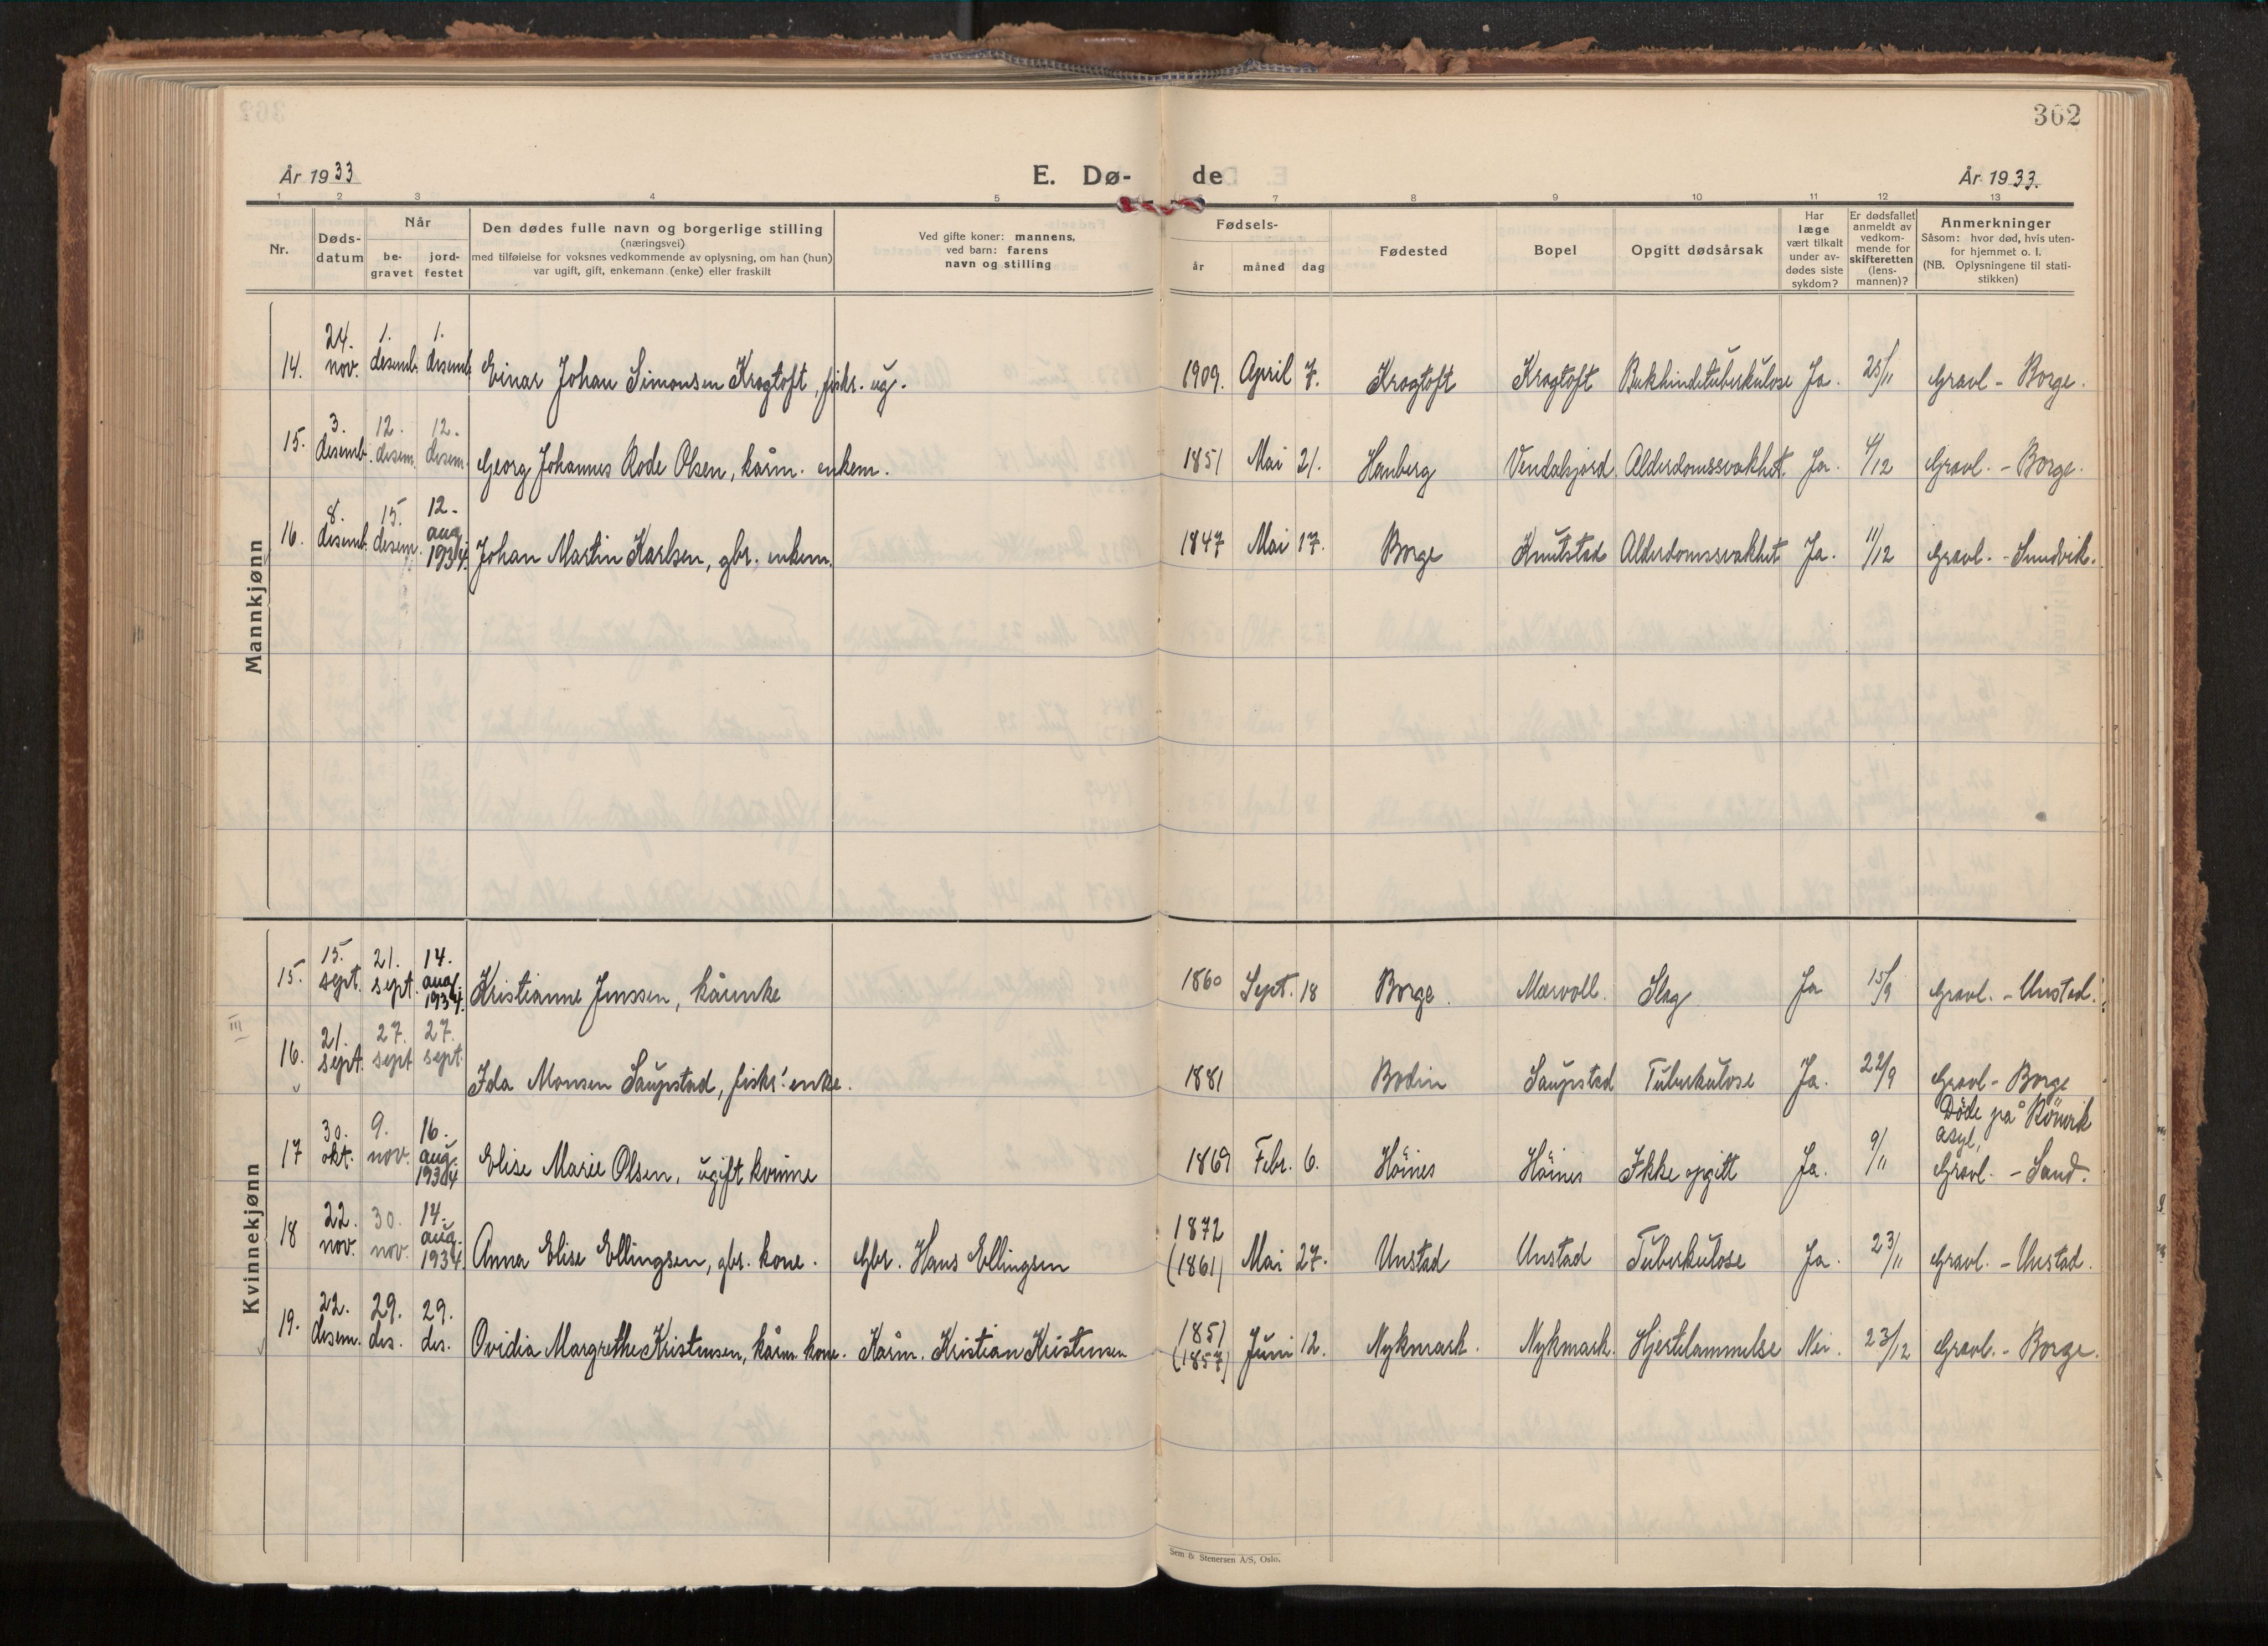 362
År 1933
E. Dø-
de
År 1933.
1 2 3 4 5 7 8 9 10 11 12 13
Nr.
Døds-
datum
Når
be-
gravet
jord-
festet
Den dødes fulle navn og borgerlige stilling
(næringsvei)
med tilføielse for voksnes vedkommende av oplysning, om han (hun)
var ugift, gift, enkemann (enke) eller fraskilt
Ved gifte koner: mannens,
ved barn: farens
navn og stilling
Fødsels-
år
måned
dag
Fødested
Bopel
Opgitt dødsårsak
Har
læge
vært tilkalt
under av-
dødes siste
sykdom?
Er dødsfallet
anmeldt av
vedkom-
mende for
skifteretten
(lens-
mannen)?
Anmerkninger
Såsom: hvor død, hvis uten-
for hjemmet o. l.
(NB. Oplysningene til stati-
stikken)
Mannkjønn
14. 24. nov. 1. desemb. 1. desemb. Einar Johan Simonsen Krogtoft, fiskr. ug. 1909. April 7. Krogtoft Krogtoft Bukhindetuberkulose Ja. 25/11 Gravl - Borge.
15. 3. desemb. 12. desem. 12. desem. Georg Johannes Rode Olsen, kårm. enkem. 1851 Mai 21. Hanberg Vendalsjord. Alderdomssvakhet. Ja. 4/12 Gravl. - Borge.
16. 8. desemb. 15. desem. 12. aug. 1934. Johan Martin Karlsen, gbr. enkem. 1847 Mai 17. Borge Knutstad Alderdomssvakhet Ja. 11/12 Gravl. - Sundvik.
Kvinnekjønn
15. 15. sept. 21. sept. 14. aug. 1934. Kristianne Jenssen, kårenke 1860 Sept. 18 Borge. Mærvoll. Slag Ja 15/9 Gravl. - Unstad.
16. 21. sept. 27. sept 27. sept. Ida Monsen Saupstad, fiskr. enke. 1881 Bodin Saupstad Tuberkulose Ja. 22/9 Gravl - Borge
17 30. okt. 9. nov. 16. aug. 1934 Elise Marie Olsen, ugift kvinne 1869 Febr. 6. Höines Höines Ikke opgitt Ja. 9/11 Döde på Rönvik
asyl,
Gravl. - Sand.
18 22. nov. 30. nov. 14. aug. 1934. Anna Elise Ellingsen, gbr. kone. Gbr. Hans Ellingsen 1872 (1861) Mai 27. Unstad Unstad Tuberkulose Ja. 23/11 Gravl. - Unstad.
19. 22. desem. 29. des. 29. des. Ovidia Margrethe Kristensen, kårm. kone. Kårm. Kristian Kristensen 1851 (1857) Juni 12. Nykmark. Nykmark. Hjertelammelse Nei. 23/12 Gravl. - Borge.
Sem & Stenersen A/S, Oslo.